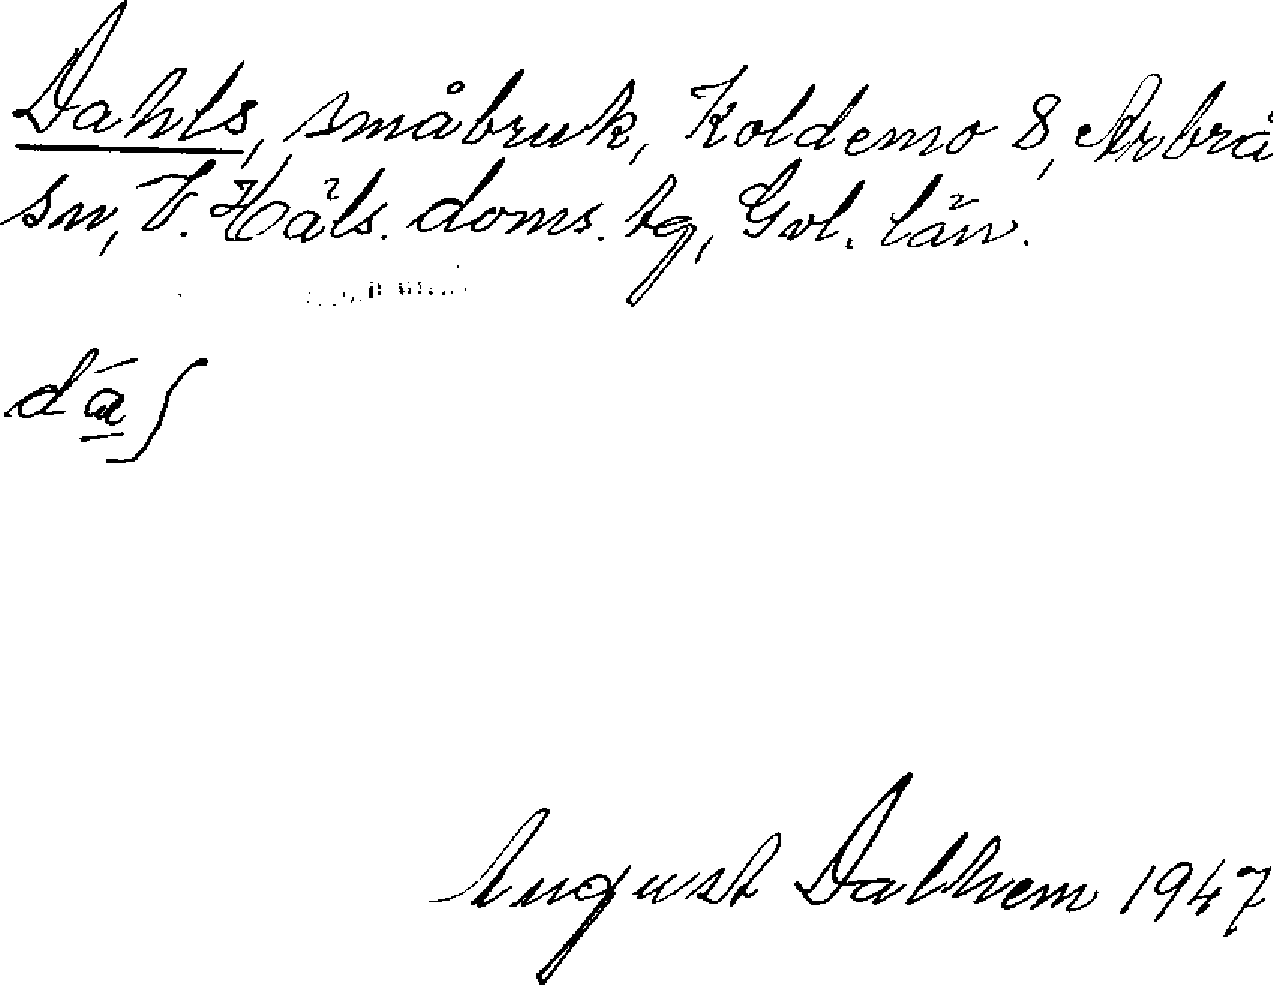 Dahls, småbruk, Koldemo 8, Arbrå
sn, V. Häls. doms. tg, Gvl. län.
dá̱ʃ
August Dalhem 1947